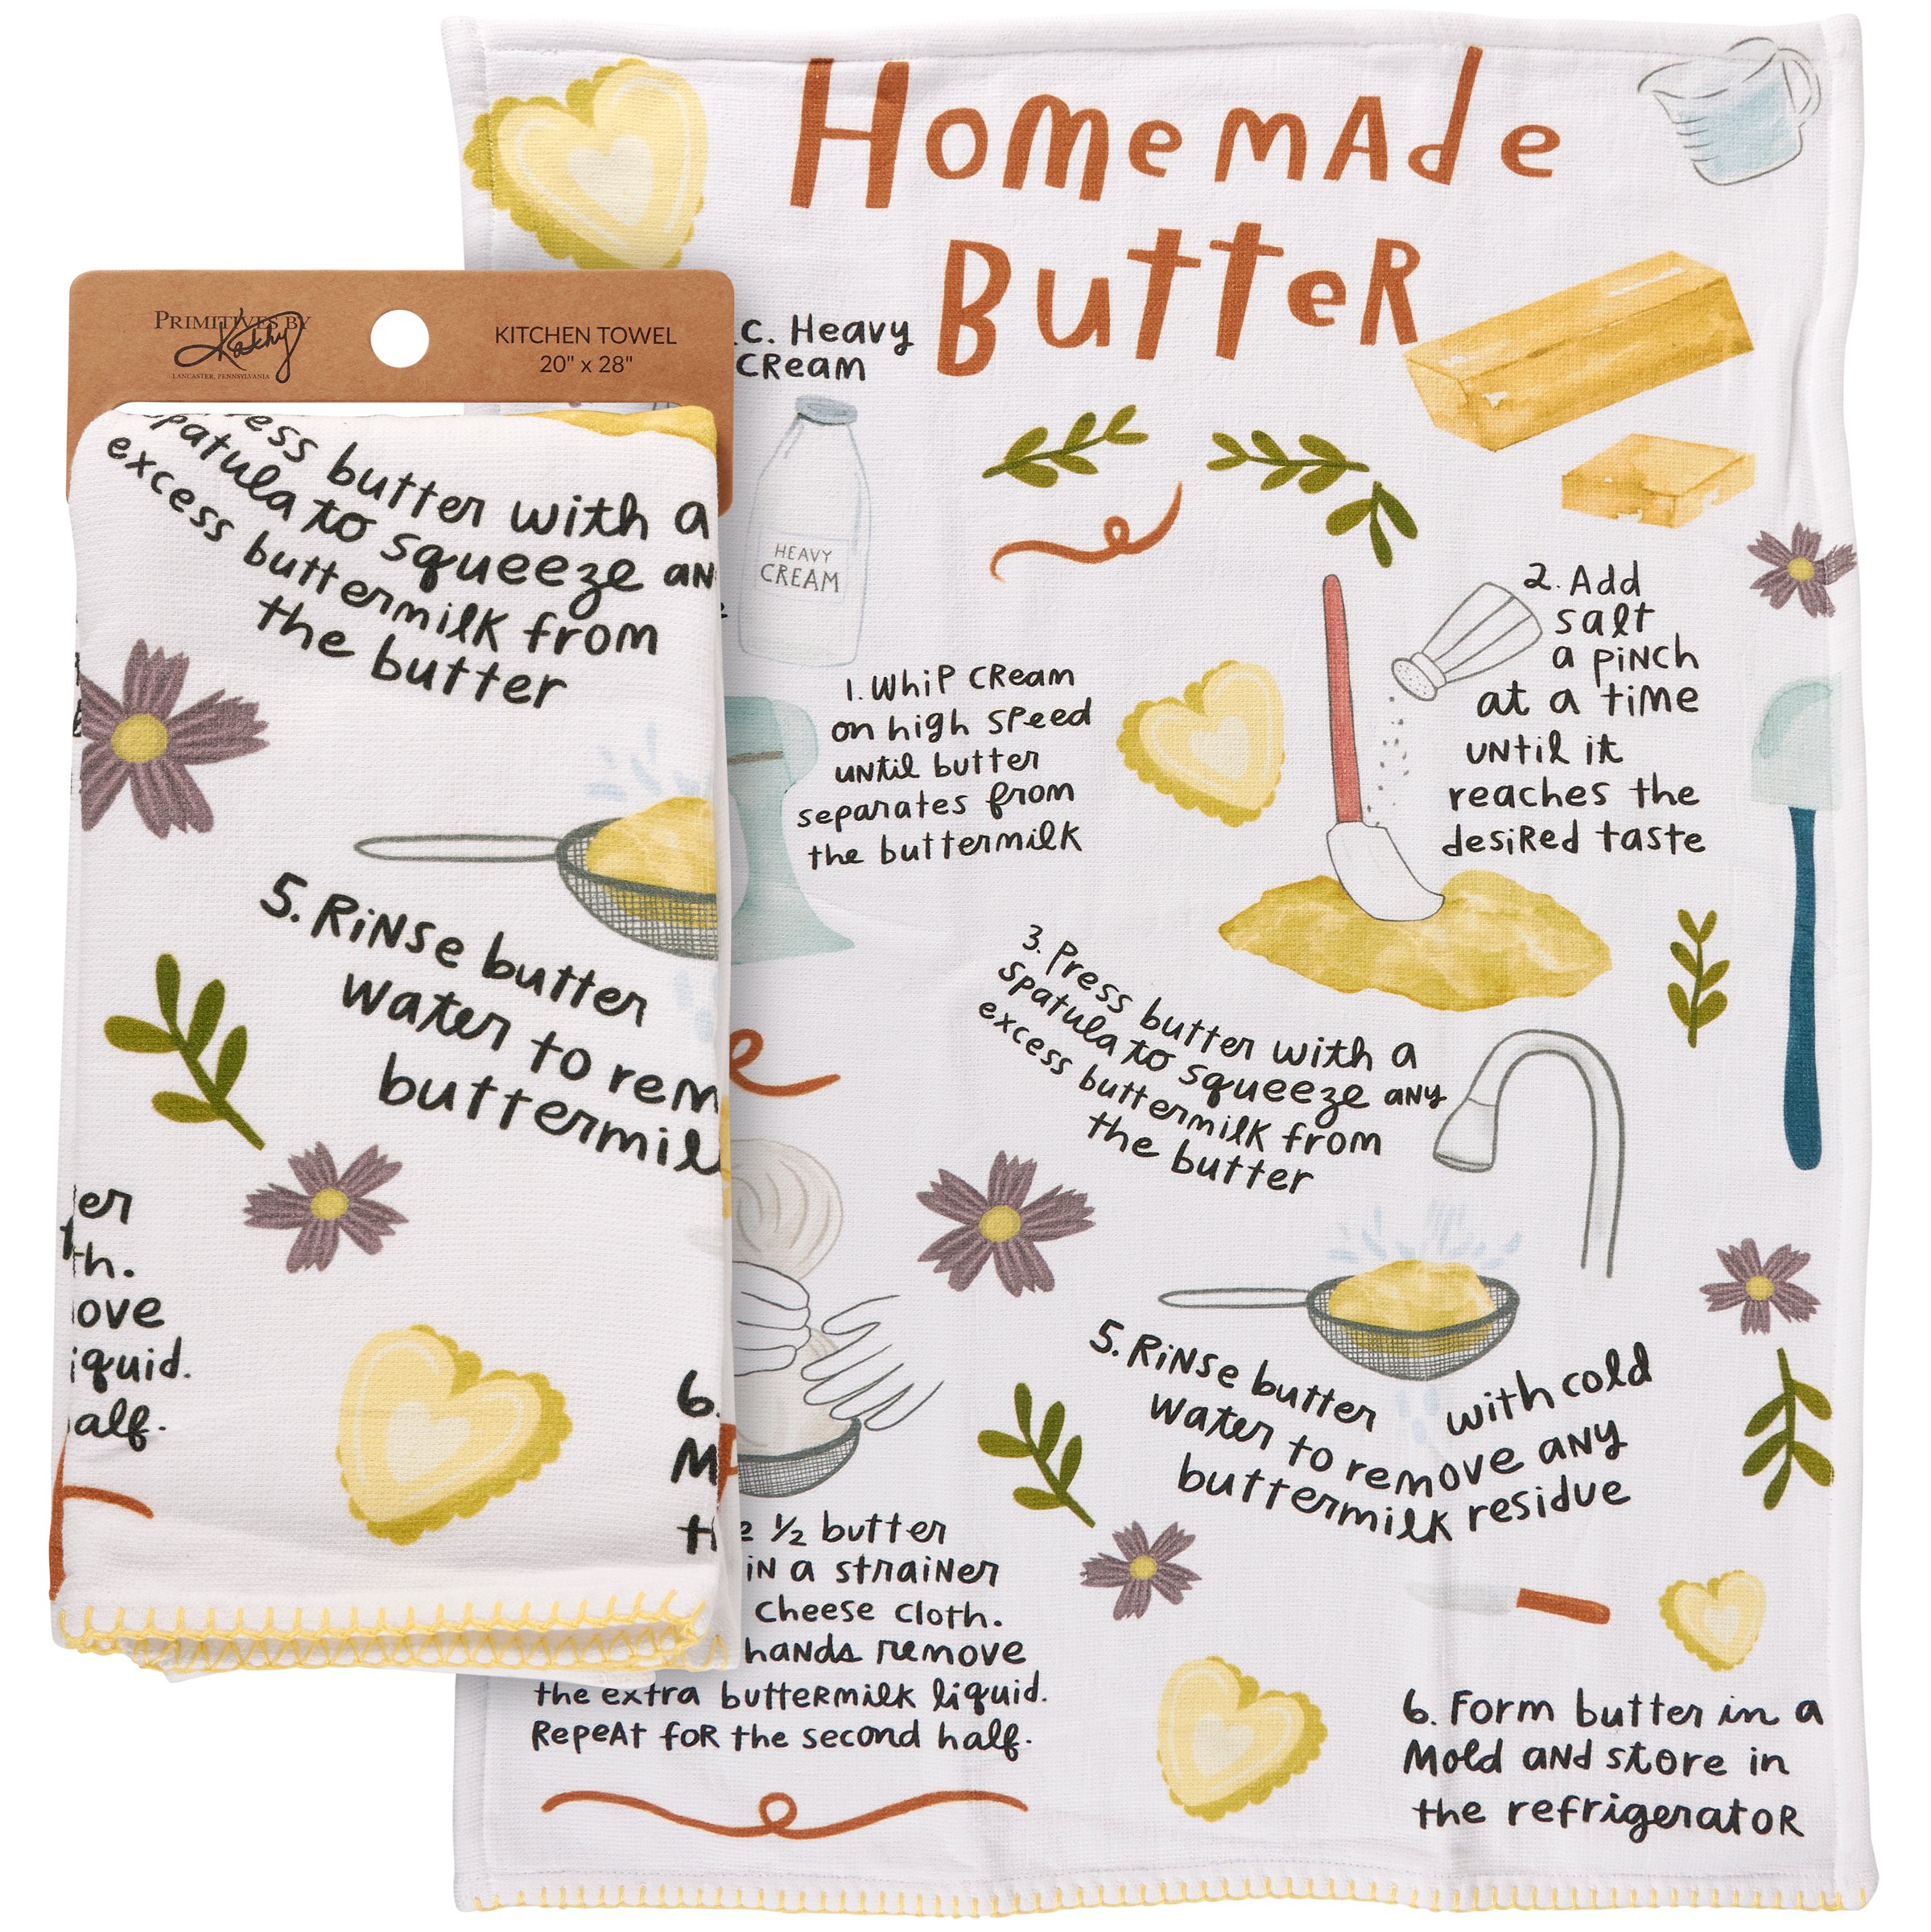 Homemade
Butter
C. Heavy
Cream
HEAVY
CREAM
1. Whip cream
on high speed
until butter
separates from
the buttermilk
2. Add
salt
a pinch
at a time
until it
reaches the
desired taste
3. Press butter with a
spatula to squeeze any
excess buttermilk from
the butter
5. Rinse butter with cold
water to remove any
buttermilk residue
½ butter
in a strainer
cheese cloth.
hands remove
the extra buttermilk liquid.
Repeat for the second half.
6. Form butter in a
mold and store in
the refrigerator
PRIMITIVES BY
Kathy
LANCASTER, PENNSYLVANIA
KITCHEN TOWEL
20" x 28"
ess butter with a
patula to squeeze an
excess buttermilk from
the butter
5. Rinse butter
water to rem
buttermil
er
th.
ove
iquid.
alf.
6.
M
th